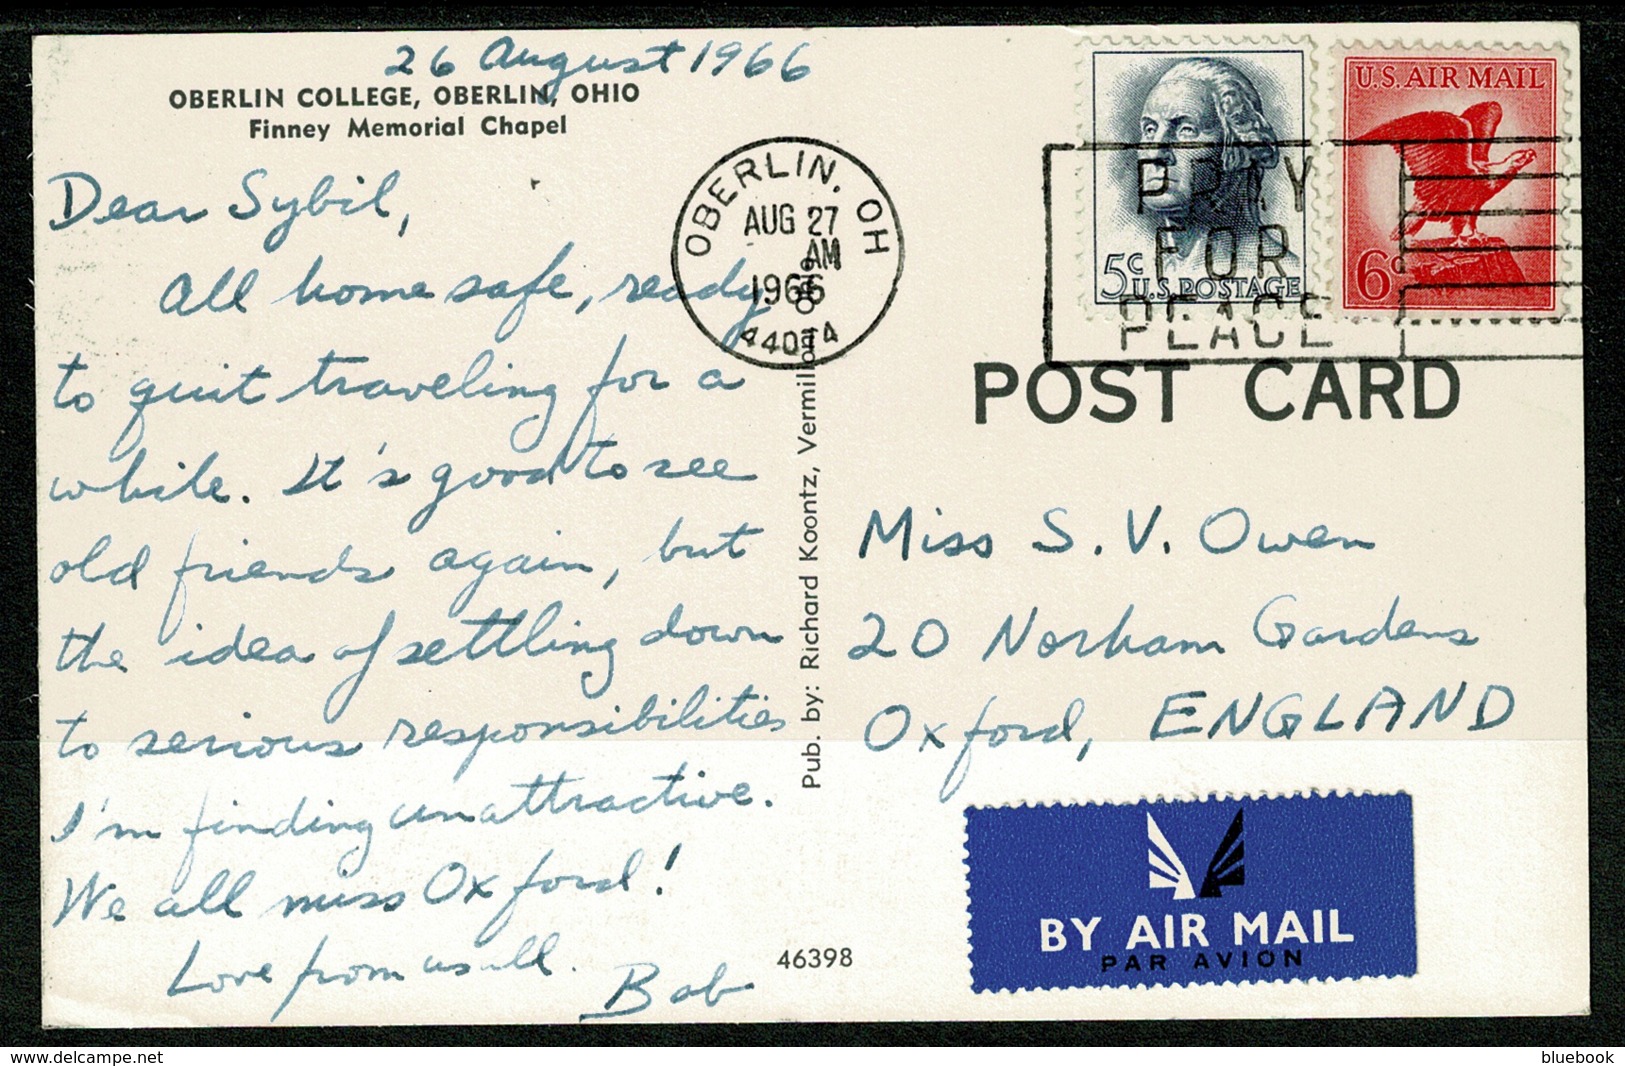 26 August 1966
OBERLIN COLLEGE, OBERLIN, OHIO
Finney Memorial Chapel
Dear Sybil,
All home safe, ready
to quit traveling for a
while. It's good to see
old friends again, but
the idea of settling down
to serious responsibilities
I'm finding unattractive.
We all miss Oxford!
Love from us all.
Bob
46398
Pub. by: Richard Koontz, Vermilion, Ohio
OBERLIN, OH
AUG 27
AM
1966
44074
PRAY
FOR
PEACE
5c
U.S. POSTAGE
U.S. AIR MAIL
6c
POST CARD
Miss S. V. Owen
20 Norham Gardens
Oxford, ENGLAND
BY AIR MAIL
PAR AVION
www.delcampe.net
bluebook